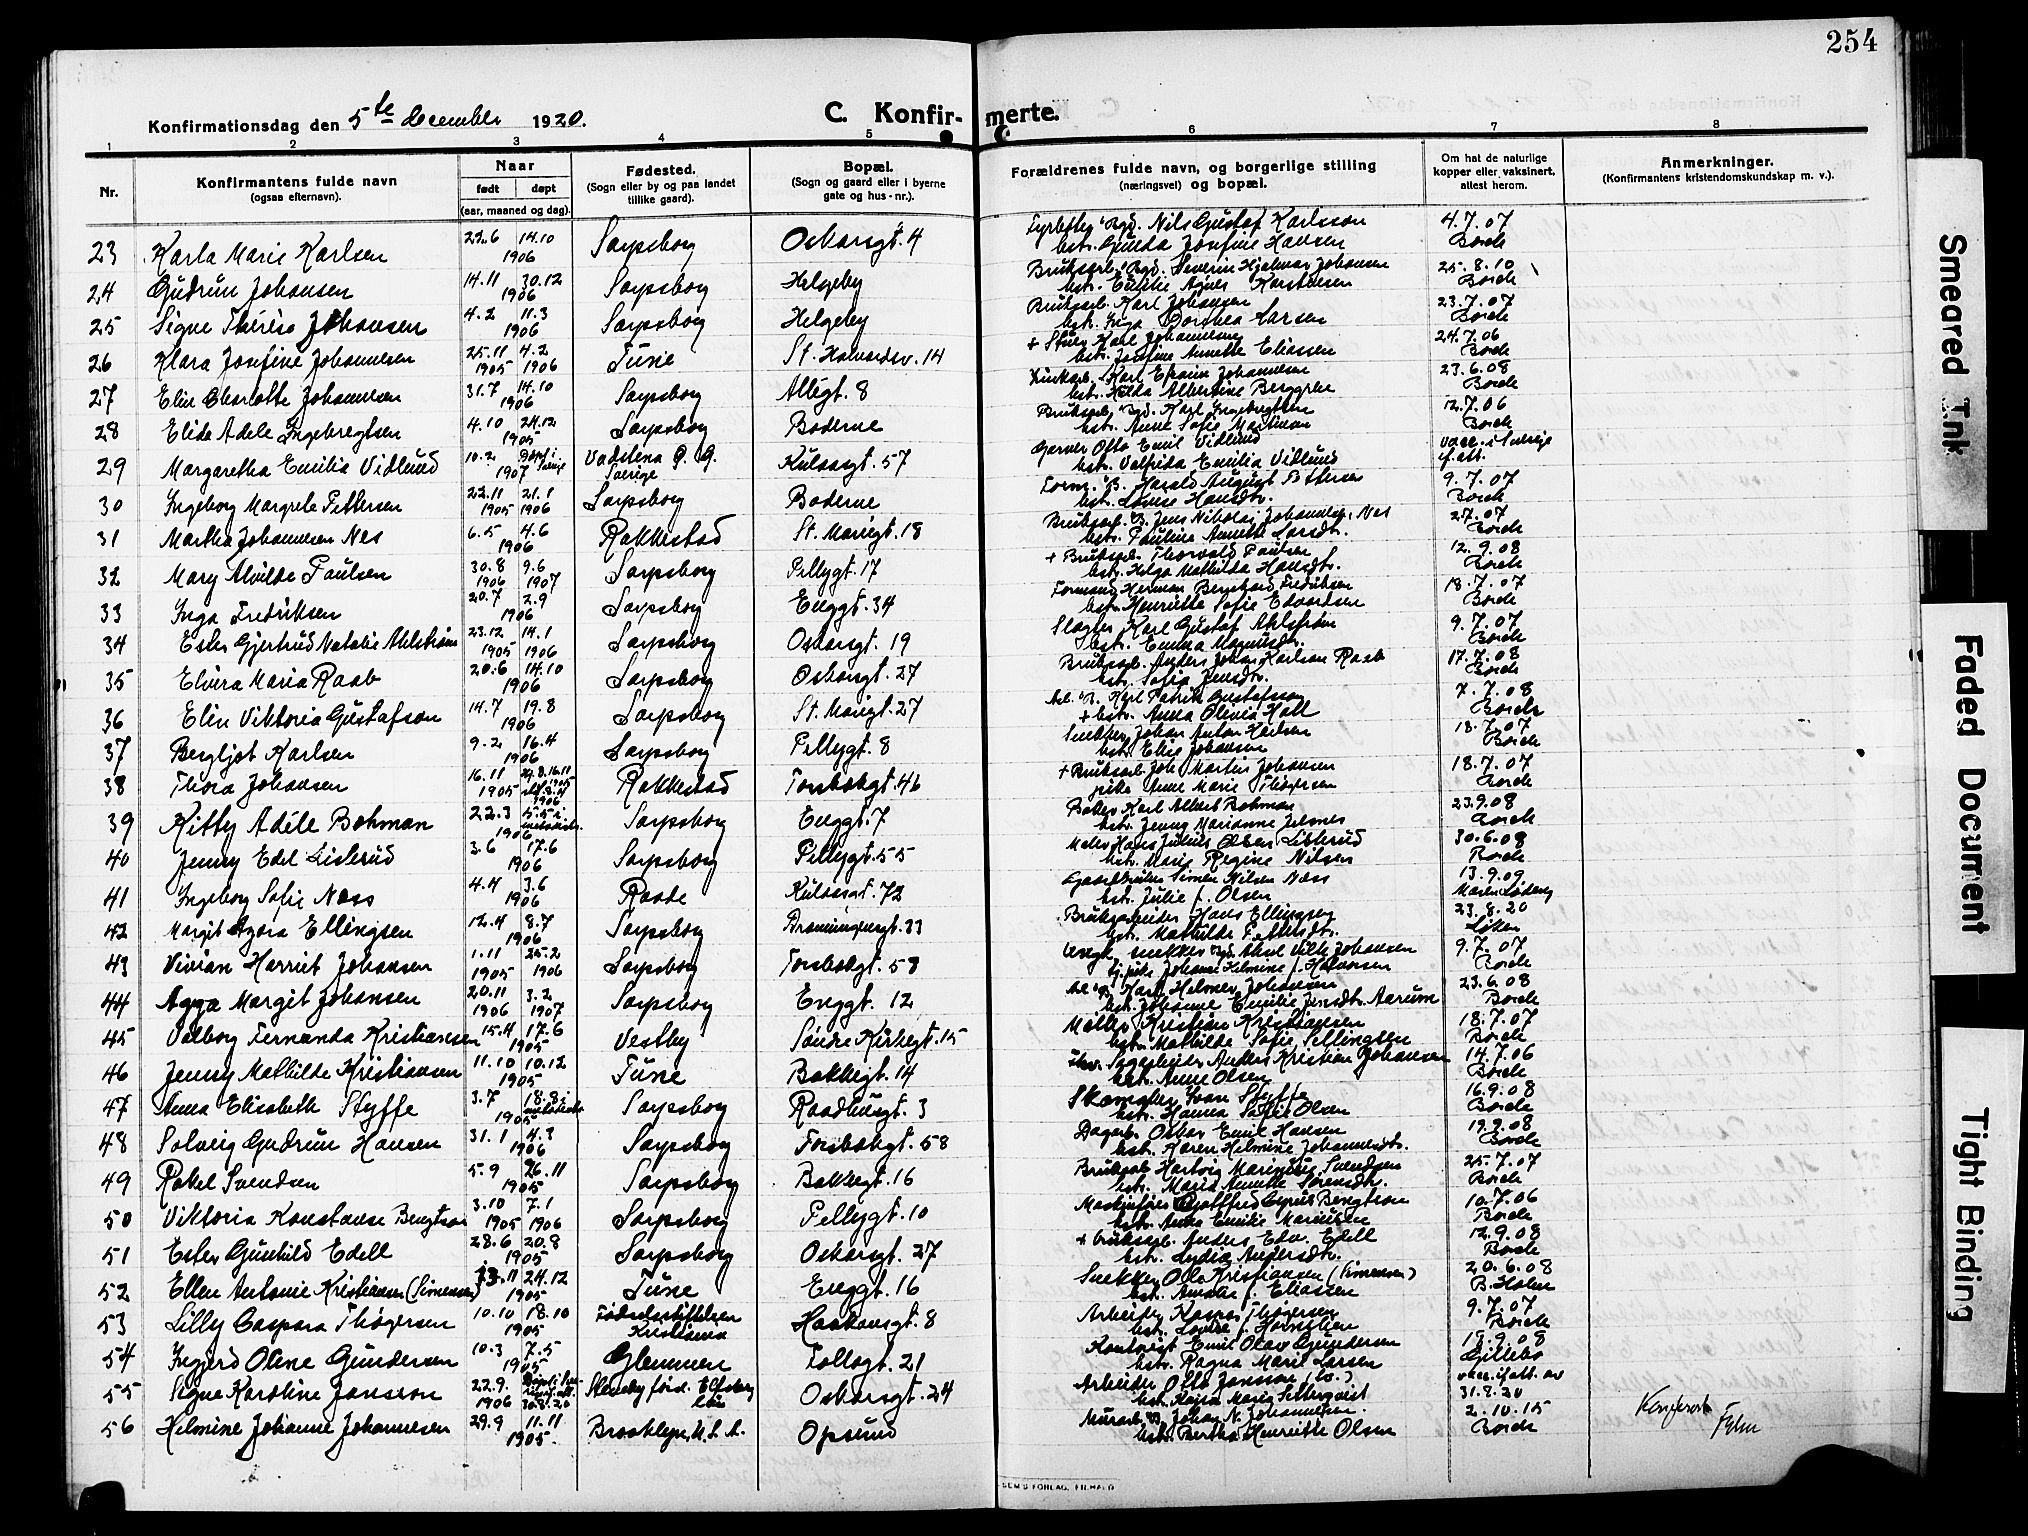 254
Konfirmationsdag den 5te december 1920.
C. Konfirmerte.
1 2 3 4 5 6 7 8
Nr.
Konfirmantens fulde navn
(ogsaa efternavn).
Naar
født døpt
(aar, maaned og dag).
Fødested.
(Sogn eller by og paa landet
tillike gaard).
Bopæl.
(Sogn og gaard eller i byerne
gate og hus-nr.).
Forældrenes fulde navn, og borgerlige stilling
(næringsvei) og bopæl.
Om hat de naturlige
kopper eller vaksinert,
attest herom.
Anmerkninger.
(Konfirmantens kristendomskundskap m. v.).
23 Karla Marie Karlsen 22.6 14.10 1906 Sarpsborg Oskarsgt. 4 Nils Gustaf Karlsson 4.7.07
hstr. Gunda Josefine Hansen Borch
24 Gudrun Johansen 14.11 30.12 1906 Sarpsborg Helgeby Bruksarb. Bgd. Severin Hjalmar Johansen 25.8.10
hstr. Emilie Agnes Karstensen Borch
25 Signe Therese Johansen 4.2 11.3 1906 Sarpsborg Helgeby Bruksarb. Karl Johansen 23.7.07
hstr. Inga Dorthea Larsen Borch
26 Klara Josefine Johannesen 25.11 1905 4.2 1906 Tune St. Halvardsv. 14 + Karl Johannesen 24.7.06
hstr. Josefine Annette Eliassen Borch
27 Elin Charlotte Johannesen 31.7 14.10 1906 Sarpsborg Allégt. 8 Karl Efraim Johannesen 23.6.08
hstr. Hilda Albertine Berggren Borch
28 Elida Adele Ingebregtsen 4.10 24.12 1905 Sarpsborg Boderne Bruksarb. Bgd. Karl Ingebregtsen 12.7.06
hstr. Anna Sofie Martinsen Borch
29 Margaretha Emilia Vidlund 10.2 1907 Døpt i Sverige Vadstena Sverige Kulaasgt. 57 Garver Otto Emil Vidlund vacc. i Sverige
hstr. Valfrida Emilia Vidlund if. att.
30 Ingeborg Margrete Pettersen 22.11 1905 21.1 1906 Sarpsborg Boderne Form. B. Harald August Pettersen 9.7.07
hstr. Lovise Hansdtr. Borch
31 Martha Johannesen Nes 6.5 4.6 1906 Rakkestad St. Mariegt. 18 Bruksarb. B. Jens Nikolai Johannes. Nes 27.07
hstr. Pauline Annette Larsdtr. Borch
32 Mary Alvilde Paulsen 30.8 1906 9.6 1907 Sarpsborg Pellygt. 17 + Bruksarb. Thorvald Paulsen 12.9.08
hstr. Helga Mathilda Hansdtr. Borch
33 Inga Fredriksen 20.7 2.9 1906 Sarpsborg Enggt. 34 Formand Herman Bernhard Fredriksen 18.7.07
hstr. Henriette Sofie Edvardsen Borch
34 Ester Gjertrud Natalie Ahlstrøm 23.12 1905 14.1 1906 Sarpsborg Oskarsgt. 19 Slagter Karl Gustaf Ahlstrøm 9.7.07
hstr. Emma Magnusdtr. Borch
35 Elvira Maria Raab 20.6 14.10 1906 Sarpsborg Oskarsgt. 27 Bruksarb. Anders Johan Karlsen Raab 17.7.08
hstr. Sofia Jensdtr. Borch
36 Elin Viktoria Gustafson 14.7 19.8 1906 Sarpsborg St. Mariegt. 27 Karl Patrik Gustafsson 7.7.08
+ hstr. Anna Olivia Hall Borch
37 Bergljot Karlsen 9.2 16.4 1906 Sarpsborg Pellygt. 8 Snekker Johan Anton Karlsen 18.7.07
hstr. Elise Johansen Borch
38 Thora Johansen 16.11 1905 1906 Rakkestad Torsbækgt. 46 + Bruksarb. Joh. Martin Johansen 18.7.07
pike Anne Marie Thøgersen Borch
39 Kitty Adéle Bohman 22.3 5.5 i 1906 Sarpsborg Enggt. 7 Baker Karl Albert Bohman 23.9.08
hstr. Jenny Marianne Borch
40 Jenny Edel Listerud 3.6 17.6 1906 Sarpsborg Pellygt. 55 Maler Hans Julius Olsen Listerud 30.6.08
hstr. Marie Regine Nilsen Borch
41 Ingeborg Sofie Næss 4.4 3.6 1906 Raade Kulaasgt. 72 Simen Nilsen Næss 13.9.09
hstr. Julie f. Olsen
42 Margit Agora Ellingsen 12.4 8.7 1906 Sarpsborg Dronningensgt. 33 Bruksarbeider Hans Ellingsen 23.8.20
hstr. Mathilde Pettersdtr. Løken
43 Vivian Harriet Johansen 1.11 1905 25.2 1906 Sarpsborg Torsbækgt. 58 Johansen 9.7.07
pike Johanne Helmine f. Halvorsen Borch
44 Agga Margit Johansen 20.11 1906 3.2 1907 Sarpsborg Enggt. 12 Karl Helmer Johansen 23.6.08
hstr. Johanne Emilie Jensdtr. Aarum Borch
45 Valborg Fernanda Kristiansen 15.4 17.6 1905 Vestby Søndre Kirkegt. 15 Møller Kristian Kristiansen 18.7.07
hstr. Mathilde Sofie Sellingsen Borch
46 Jenny Mathilde Kristiansen 11.10 10.12 1905 Tune Bakkegt. 14 Sagarbeider Anders Kristian Johansen 14.7.06
hstr. Anne Olsen Borch
47 Anna Elisabeth Styffe 3.7 18.8 i 1905 Sarpsborg Raadhusgt. 3 Skomaker Ivar Styffe 16.9.08
hstr. Hanna Sofie Olsen Borch
48 Solveig Gudrun Hansen 31.1 4.3 1906 Sarpsborg Torsbækgt. 58 Dagarb. Oskar Emil Hansen 19.9.08
hstr. Karen Helmine Johannesdtr. Borch
49 Rakel Svendsen 5.9 26.11 1905 Sarpsborg Bakkegt. 16 Bruksarb. Hartvig Marinius Svendsen 25.7.07
hstr. Maria Annette Sørensdtr. Borch
50 Viktoria Konstanse Bengtson 3.10 1905 7.1 1906 Sarpsborg Pellygt. 10 Maskinfører Gottfred Cyrus Bengtson 10.7.06
hstr. Anna Emilie Mariusen Borch
51 Ester Gunhild Edell 28.6 20.8 1905 Sarpsborg Oskarsgt. 27 + Bruksarb. Anders Edv. Edell 12.9.08
hstr. Lydia Andersdtr. Borch
52 Ellen Antonie Kristiansen (Simensen) 13.11 24.12 1905 Tune Enggt. 16 Snekker Ole Kristiansen (Simensen) 20.6.08
hstr. Amalie f. Eliassen B. Holm
53 Lilly Caspara Thøgersen 10.10 18.10 1905 Fødselsstiftelsen Kristiania Haakonsgt. 8 Arbeider Kaspar Thøgersen 9.7.07
hstr. Lovise f. Borch
54 Ingjerd Oline Gundersen 10.3 7.5 1905 Glemmen Follogt. 21 Kontorist Emil Olav Gundersen 19.9.08
hstr. Ragna Marie Larsen Gillebo
55 Signe Karoline Jansson 22.9. 1906 30.8.20 Oskarsgt. 24 Arbeider Otto Jansson (sv.) vacc. if. att. av
hstr. Kajsa Maria Setterqvist 31.8.20
56 Helmine Johanne Johannesen 29.9 11.11 1905. Brooklyn, U.S.A. Opsund Murarb. B. Johan N. Johannesen. 2.10.15
hstr. Bertha Henriette Olsen Borch
SEM'S FORLAG, FR.HALD
Smeared Ink
Faded Document
Tight Binding